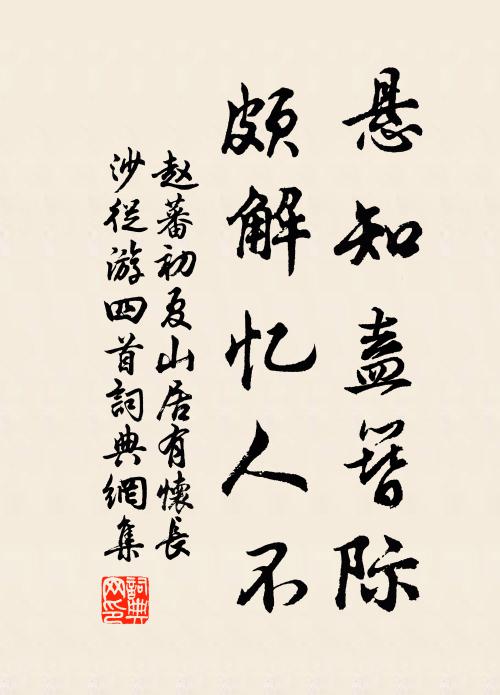 悬知盍簪际
颇解忆人不
赵蕃初夏山居有懷長
沙從游四首詞典網集
詞典网印